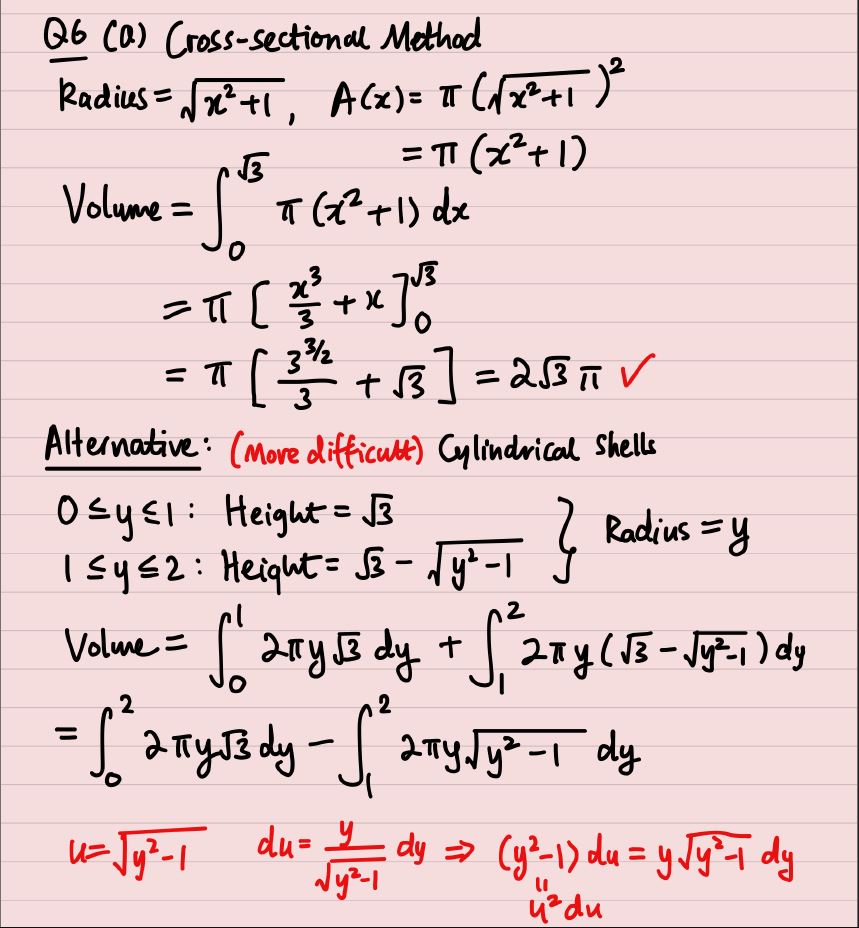 Q6 (a) Cross-sectional Method
Radius = √(x²+1), A(x) = π(√(x²+1))²
= π(x²+1)
Volume = ∫₀^√3 π(x²+1) dx
= π [x³/3 + x]₀^√3
= π [3^(3/2)/3 + √3] = 2√3 π ✓
Alternative: (More difficult) Cylindrical Shells
0 ≤ y ≤ 1 : Height = √3
1 ≤ y ≤ 2 : Height = √3 − √(y²−1) } Radius = y
Volume = ∫₀¹ 2πy√3 dy + ∫₁² 2πy(√3 − √(y²−1)) dy
= ∫₀² 2πy√3 dy − ∫₁² 2πy√(y²−1) dy
u = √(y²−1) du = y/√(y²−1) dy ⇒ (y²−1) du = y√(y²−1) dy
॥
u² du